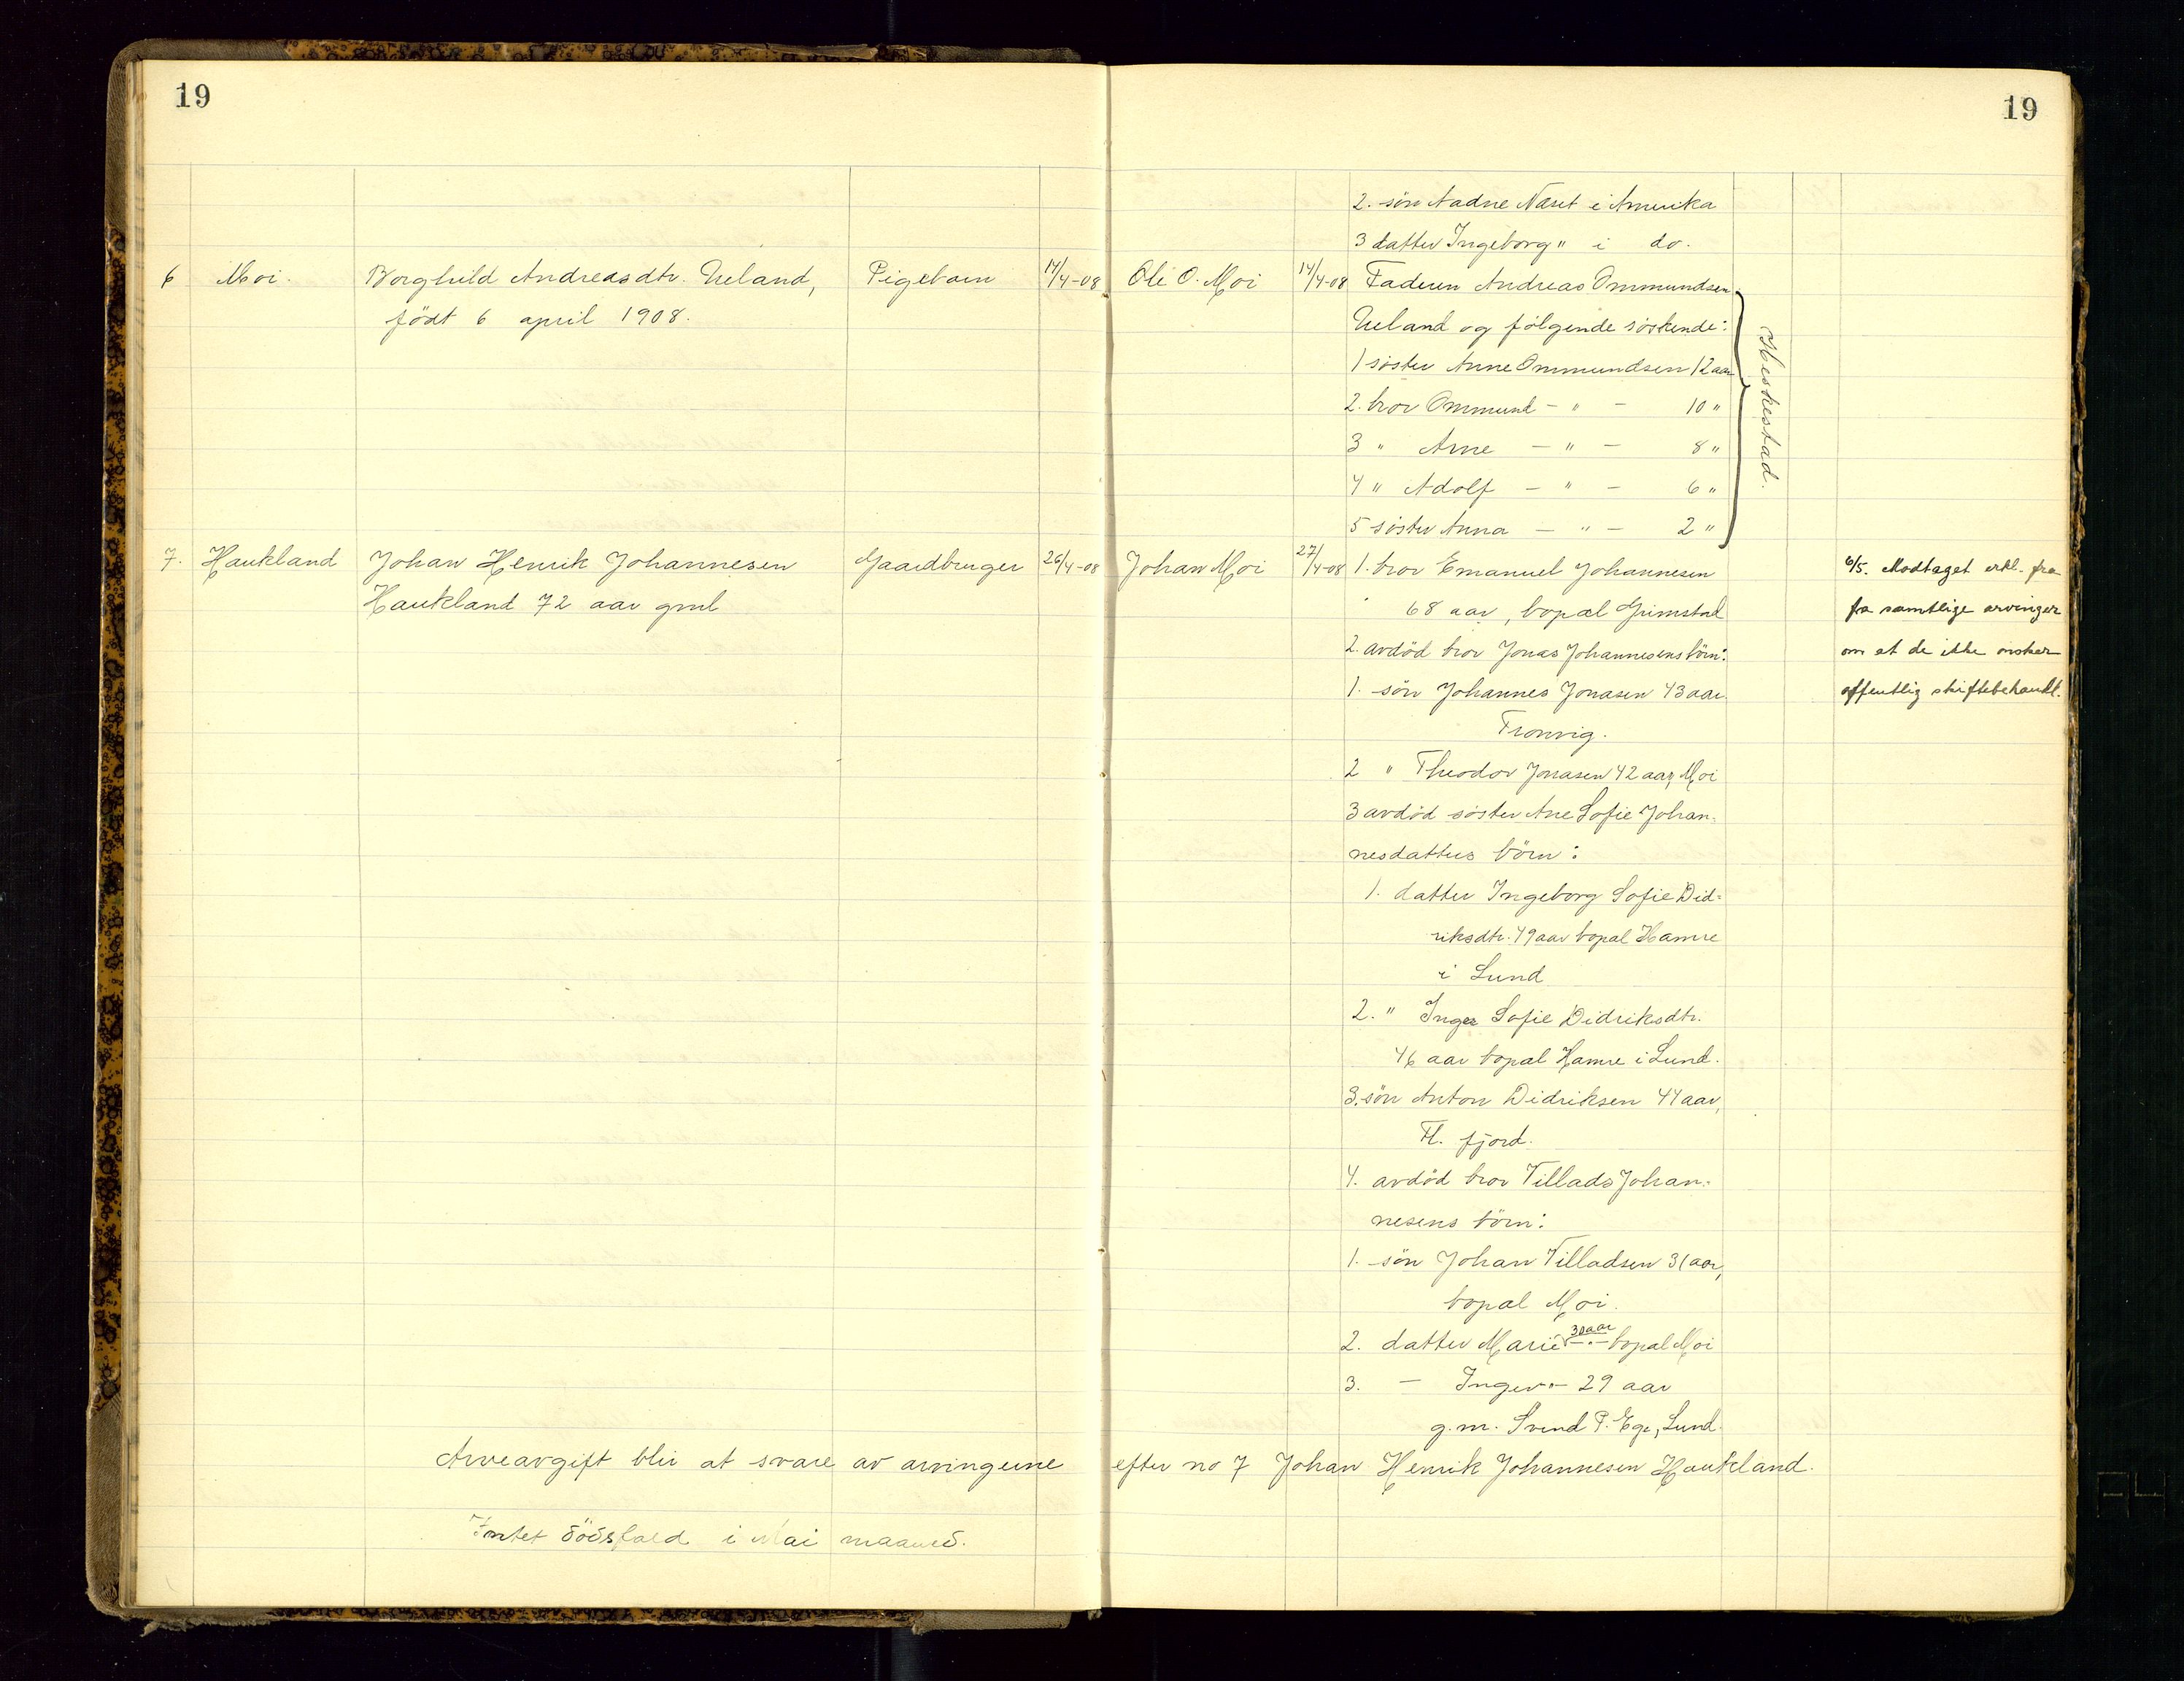 19
19
2. søn Aadne Næset i Amerika
3 datter Ingeborg " i do.
6 Moi. Borghild Andreasdtr. Ueland, Pigebarn 14/4-08 Ole O. Moi 14/4-08 Faderen Andreas Ommundsen
født 6 april 1908. Ueland og følgende søskende:
1 søster Anne Ommundsen 12 aar
2. bror Ommund - " - 10 "
3 " Arne - " - 8 "
4 " Adolf - " - 6 "
5 søster Anna - " - 2 "
Heskestad.
7. Haukland Johan Henrik Johannesen Gaardbruger 26/4-08 Johan Moi 27/4-08 1. bror Emanuel Johannesen 6/5. Modtaget erkl. fra
Haukland 72 aar gml 68 aar, bopæl Grimstad fra samtlige arvinger
2. avdöd bror Jonas Johannesens börn: om at de ikke ønsker
1. sön Johannes Jonasen 43 aar. offentlig skiftebehandl.
Tronvig.
2 " Theodor Jonasen 42 aar, Moi
3 avdöd søster Ane Sofie Johan-
nesdatters börn:
1. datter Ingeborg Sofie Did-
riksdtr. 49 aar bopæl Hamre
i Lund
2. " Inger Sofie Didriksdtr.
46 aar bopæl Hamre i Lund.
3. sön Anton Didriksen 44 aar,
Fl. fjord.
4. avdöd bror Tillads Johan-
nesens börn:
1. sön Johan Tilladsen 31 aar,
bopæl Moi.
2. datter Marie - " - 30 aar bopæl Moi
3. - Inger - " - 29 aar
g.m. Svend P. Ege, Lund.
Arveavgift blir at svare av arvingerne efter no 7 Johan Henrik Johannesen Haukland.
Intet dödsfald i Mai maaned.